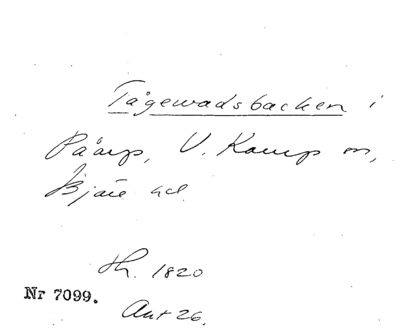 Tågewadsbacken i
Påarp, V. Karup sn,
Bjäre hd.
Sk. 1820
Nr 7099.
Ant 26.